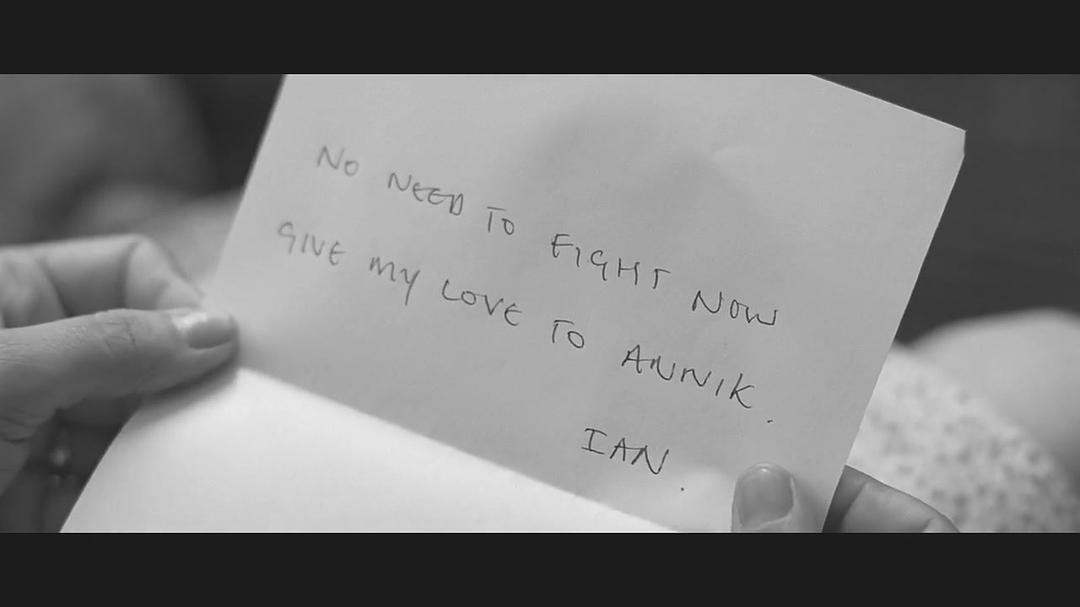 NO NEED TO FIGHT NOW
GIVE MY LOVE TO ANNIK.
IAN.